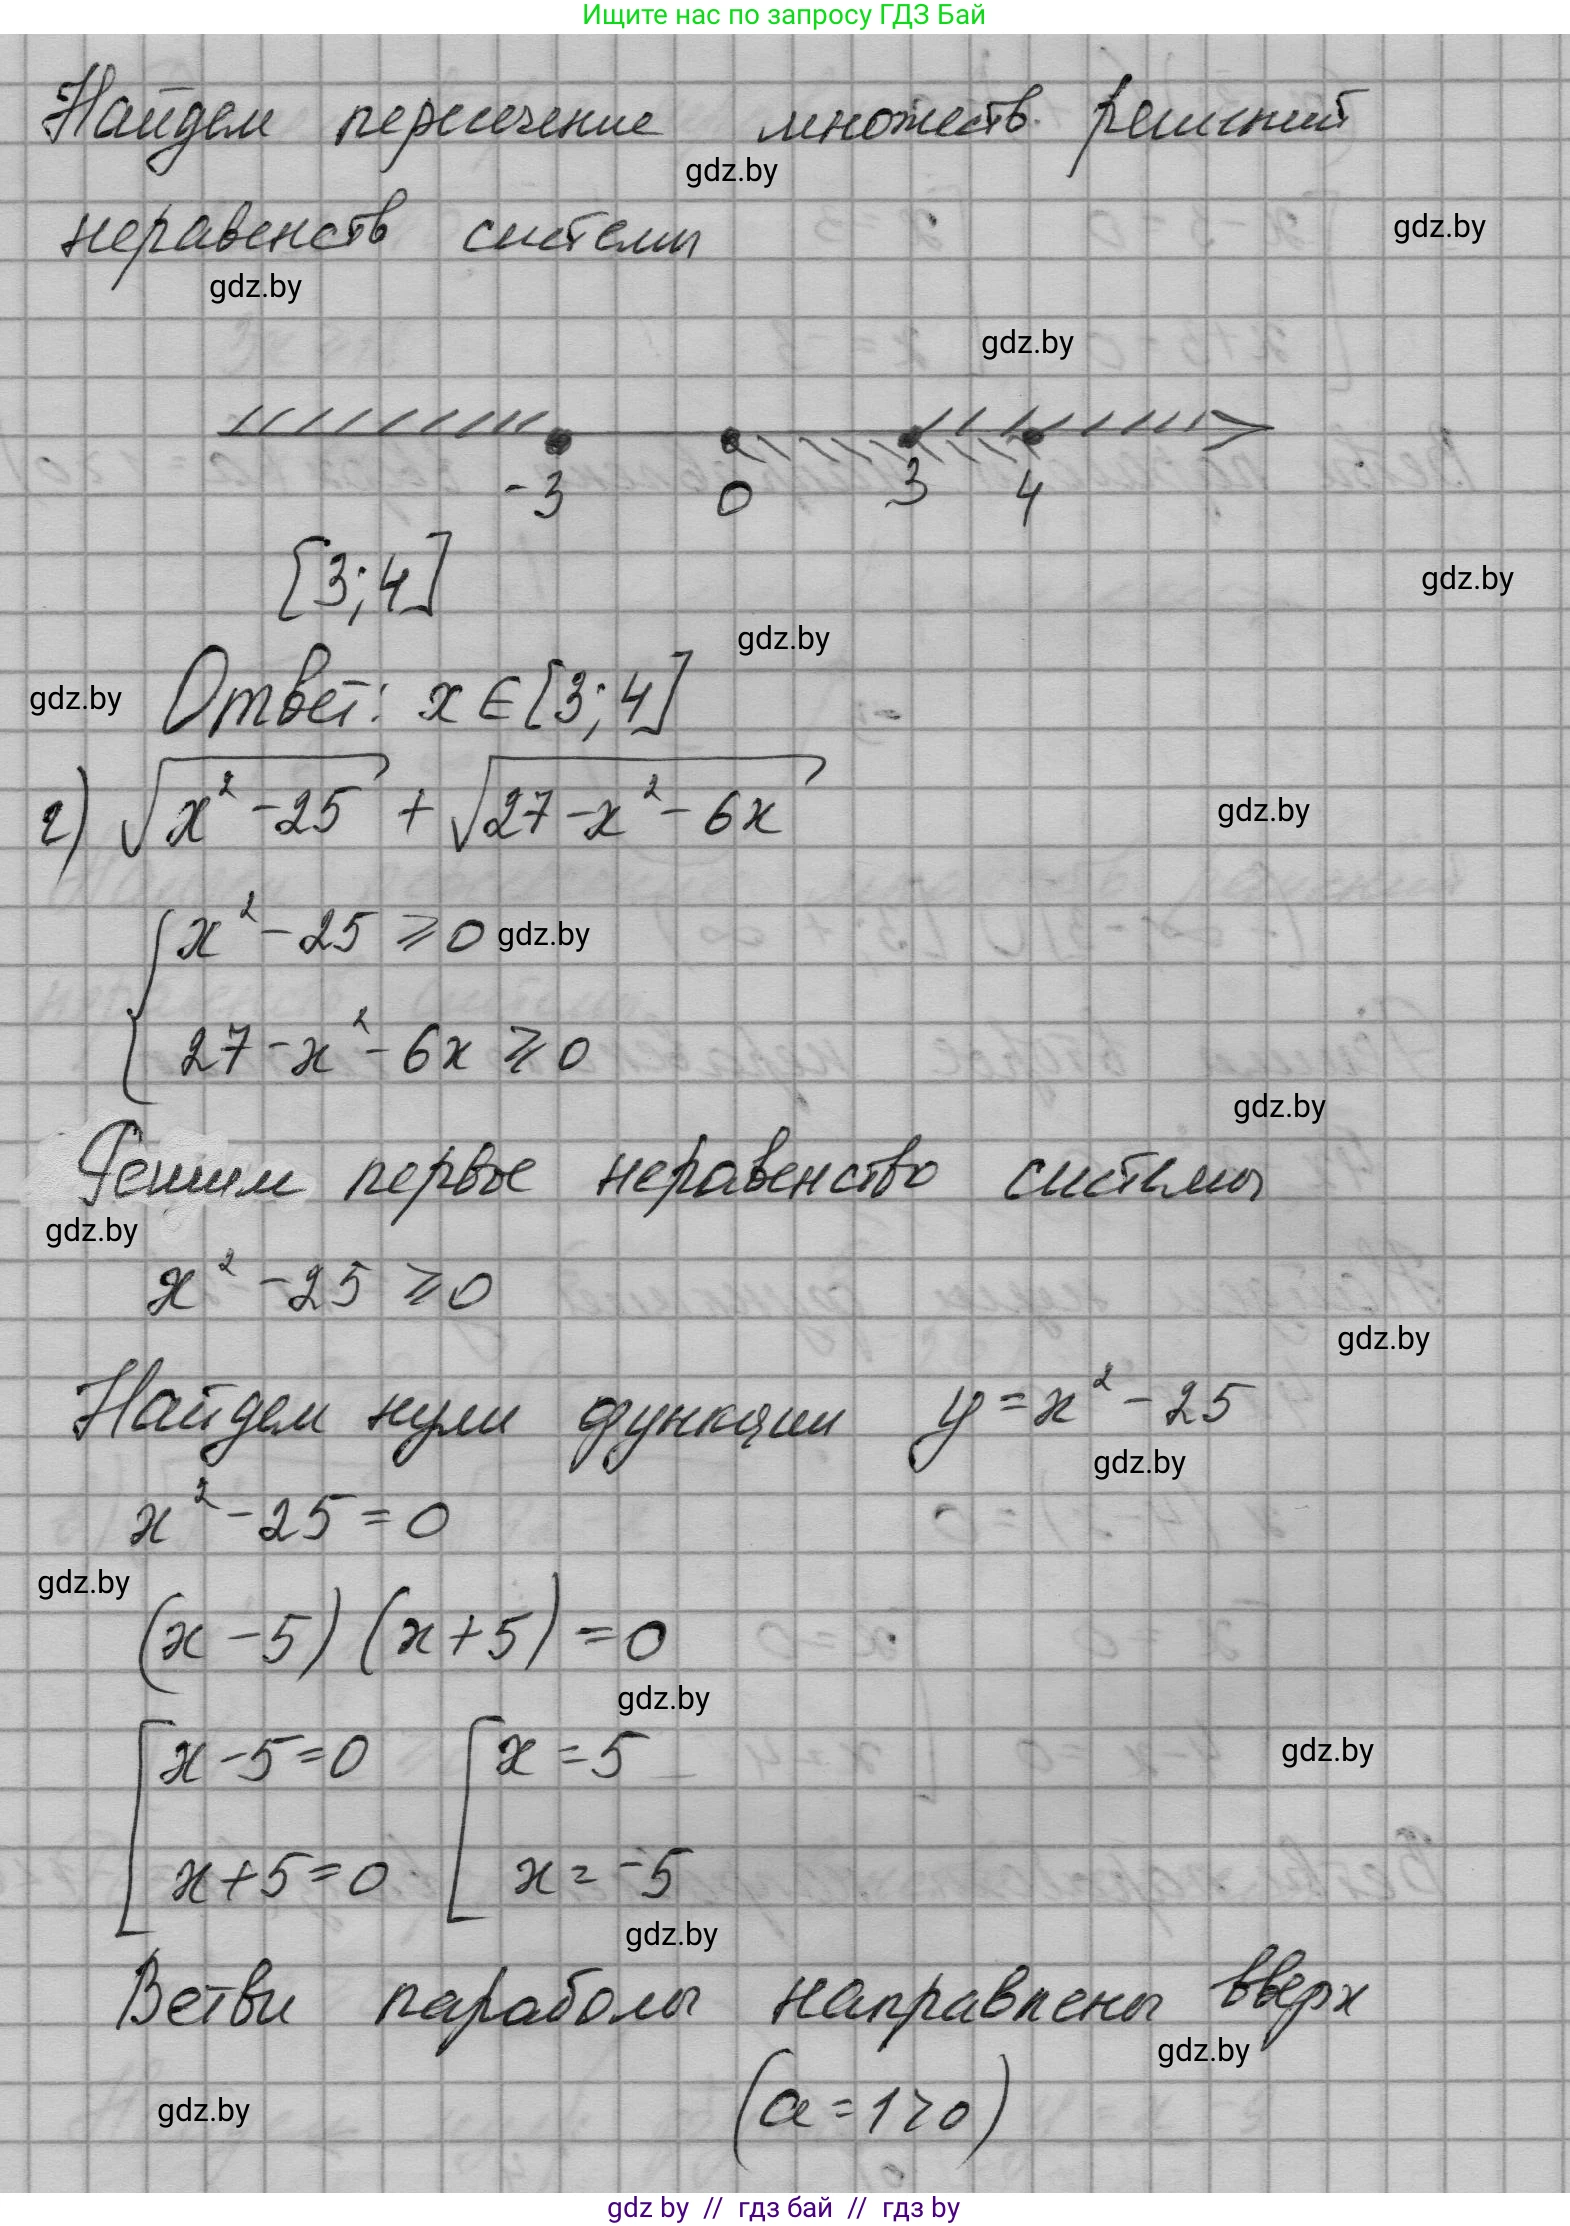 Ищите нас по запросу ГДЗ Бай
Найдем пересечение множеств решений
gdz.by
неравенств системы gdz.by
gdz.by
gdz.by
-3 0 3 4
[3;4]
gdz.by
gdz.by
gdz.by Ответ: x∈[3;4]
г) √(x² - 25) + √(27 - x² - 6x) gdz.by
{ x² - 25 ⩾ 0 gdz.by
27 - x² - 6x ⩾ 0
gdz.by
Решим первое неравенство системы
gdz.by
x² - 25 ⩾ 0
gdz.by
Найдем нули функции y = x² - 25
gdz.by
x² - 25 = 0
gdz.by
(x - 5)(x + 5) = 0
gdz.by
[ x - 5 = 0 [ x = 5 gdz.by
x + 5 = 0 x = -5
gdz.by
Ветви параболы направлены вверх
gdz.by
gdz.by (a = 1 > 0)
gdz by // гдз бай // гдз by